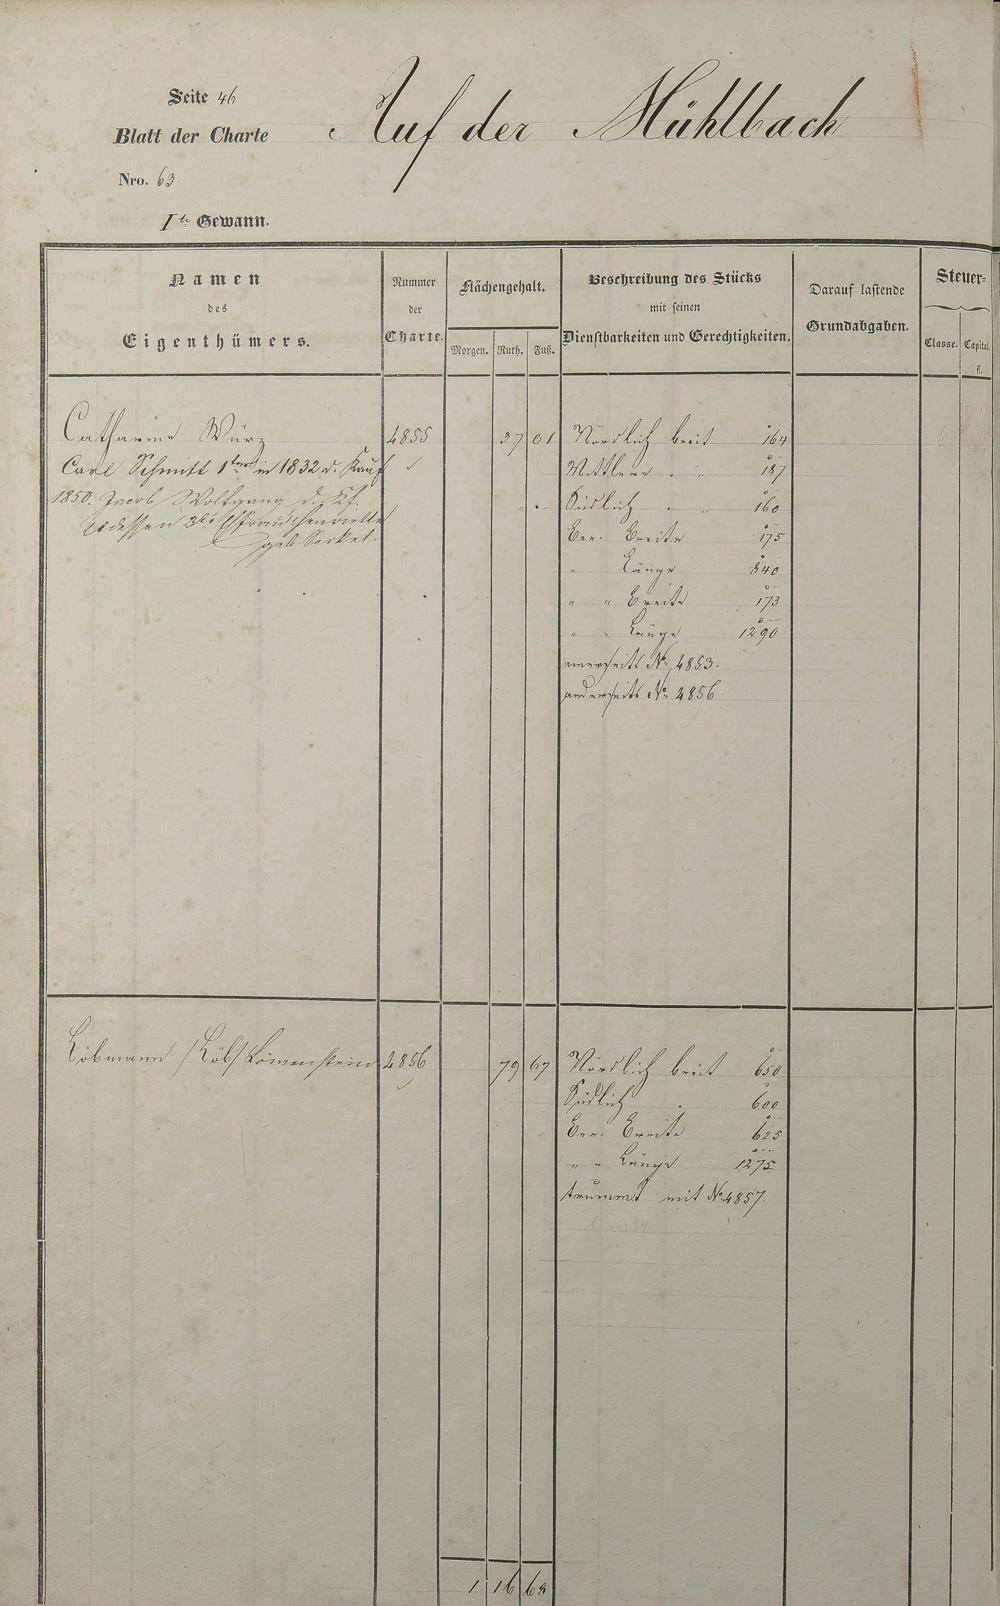 Seite 46
Auf der Mühlbach
Blatt der Charte
Nro. 63
Ite Gewann.
Namen
des
Eigenthümers.
Nummer
der
Charte.
Flächengehalt.
Morgen. Ruth. Fuß.
Beschreibung des Stücks
mit seinen
Dienstbarkeiten und Gerechtigkeiten.
Darauf lastende
Grundabgaben.
Steuer=
Classe. Capital.
fl.
Catharine Würz 4855 37 01 Nördlich breit 164
Carl Schmitt 1ter in 1832 d. Kauf Mittlere " " 187
1850. Jacob Wolfgang d. Kf. Südlich " " 160
dessen Ehefrau Henriette Ber. Breite 175
geb.
" Länge 840
" " Breite 173
" " Länge 1290
einerseits No. 4853.
anderseits No. 4856.
Löbmann /Löb/ Löwenstein 4856 79 67 Nördlich breit 650
Südlich " 600
Ber. Breite 625
" " Länge 1275
mit No. 4857.
1 16 68